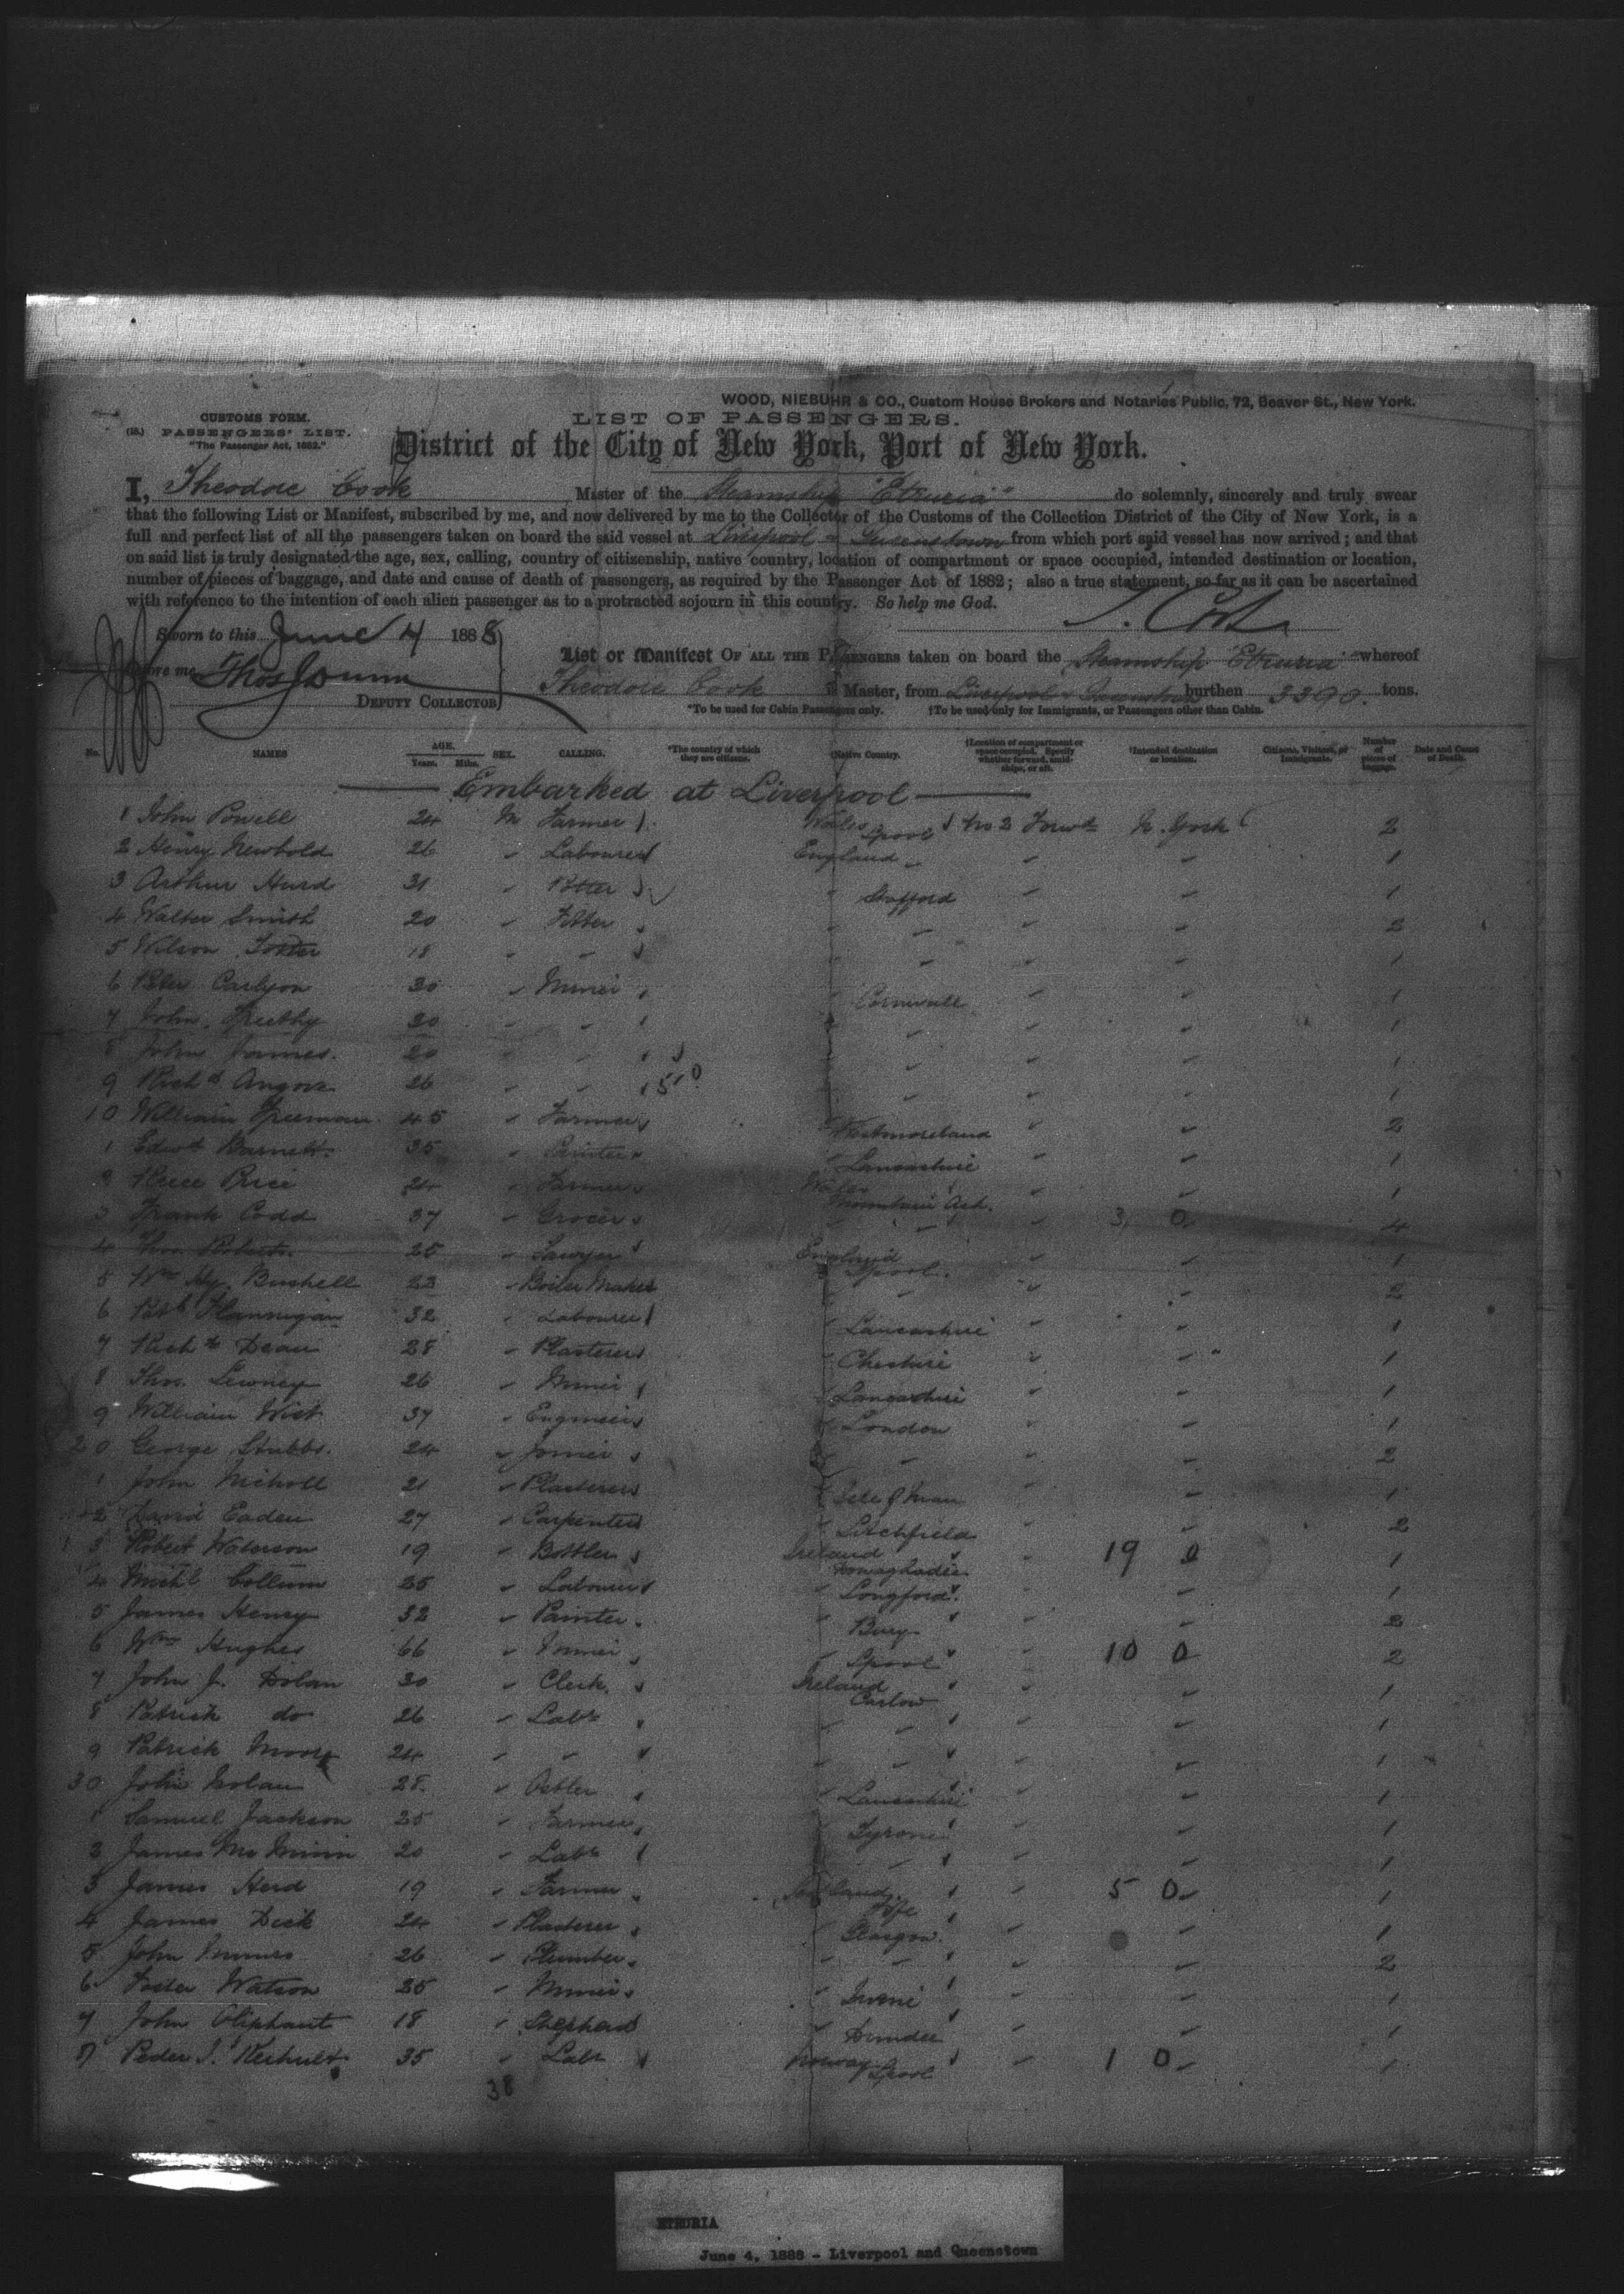 WOOD, NIEBUHR & CO., Custom House Brokers and Notaries Public, 72, Beaver St., New York.
CUSTOMS FORM.
LIST OF PASSENGERS.
(18.) PASSENGERS' LIST.
"The Passenger Act, 1882."
District of the City of New York, Port of New York.
I, Theodore Cook Master of the Steamship "Etruria" do solemnly, sincerely and truly swear
that the following List or Manifest, subscribed by me, and now delivered by me to the Collector of the Customs of the Collection District of the City of New York, is a
full and perfect list of all the passengers taken on board the said vessel at Liverpool & Queenstown from which port said vessel has now arrived; and that
on said list is truly designated the age, sex, calling, country of citizenship, native country, location of compartment or space occupied, intended destination or location,
number of pieces of baggage, and date and cause of death of passengers, as required by the Passenger Act of 1882; also a true statement, so far as it can be ascertained
with reference to the intention of each alien passenger as to a protracted sojourn in this country. So help me God.
T. Cook
Sworn to this June 4 1888
before me Thos J Dunn
DEPUTY COLLECTOR
List or Manifest OF ALL THE PASSENGERS taken on board the Steamship "Etruria" whereof
Theodore Cook is Master, from Liverpool & Queenstown burthen 3390. tons.
*To be used for Cabin Passengers only. †To be used only for Immigrants, or Passengers other than Cabin.
No. NAMES AGE. Years. Mths. SEX. CALLING. *The country of which they are citizens. †Native Country. †Location of compartment or space occupied. Specify whether forward, amidships, or aft. †Intended destination or location. Citizens, Visitors, or Immigrants. Number of pieces of baggage. Date and Cause of Death.
Embarked at Liverpool
1 John Powell 24 M Farmer Wales Lpool No 2 Forwd N. York 2
2 Henry Newbold 26 " Labourer England " " " 1
3 Arthur Hurd 31 " Potter " Stafford " " 1
4 Walter Smith 20 " Fitter " " " " 2
5 Wilson Foster 18 " " " " " 1
6 Peter Carlyon 30 " Miner " Cornwall " " 1
7 John 20 " " " " " " 1
8 John James. 20 " " " " " 1
9 Richd 26 " " 510 " " " 1
10 William Freeman 45 " Farmer " Westmoreland " " 2
1 Edwd Barnett 35 " Painter " Lancashire " " 1
2 Price 24 " Farmer Wales " " 1
3 Frank Codd 37 " Grocer Mountain Ash. " 3 0 4
4 Thos Roberts 25 " Sawyer England Lpool. " " 1
5 Wm Hy. Bushell 23 " Boiler Maker " " " " 2
6 Patk Flannigan 32 " Labourer " Lancashire " " 1
7 Richd Dean 28 " Plasterer " Cheshire " " 1
8 Thos. 26 " Miner " Lancashire " " 1
9 William West 37 " Engineer " London " " 1
20 George Stubbs. 24 " Joiner " " " 2
1 John Nicholl 21 " Plasterer " Isle of Man " " 1
2 David Eaden 27 " Carpenter " Litchfield " 2
3 Robert Waterson 19 " Bottler Ireland Donaghadee " 19 0 1
4 Michl Collum 25 " Labourer " Longford " " 1
5 James Henry 32 " Painter " Bury " " 2
6 Wm Hughes 66 " Miner " Lpool " 10 0 2
7 John J. Dolan 30 " Clerk. Ireland Carlow " " 1
8 Patrick do 26 " Labr " " " " 1
9 Patrick Moore 24 " " " " " 1
30 John Nolan 28 " Ostler " Lancashire " " 1
1 Samuel Jackson 25 " Farmer " Tyrone " " 1
2 James McMinin 20 " Labr " " " 1
3 James Herd 19 " Farmer Scotland Fife " 5 0 1
4 James Dick 24 " Plasterer " Glasgow. " " 1
5 John 26 " Plumber " " " " 2
6 Foster Watson 25 " Miner " Irvine " " 1
7 John Oliphant 18 " Shepherd " Dundee " 1
8 Peder J. 35 " Labr Norway Lpool " 1 0 1
38
ETRURIA
June 4, 1888 - Liverpool and Queenstown